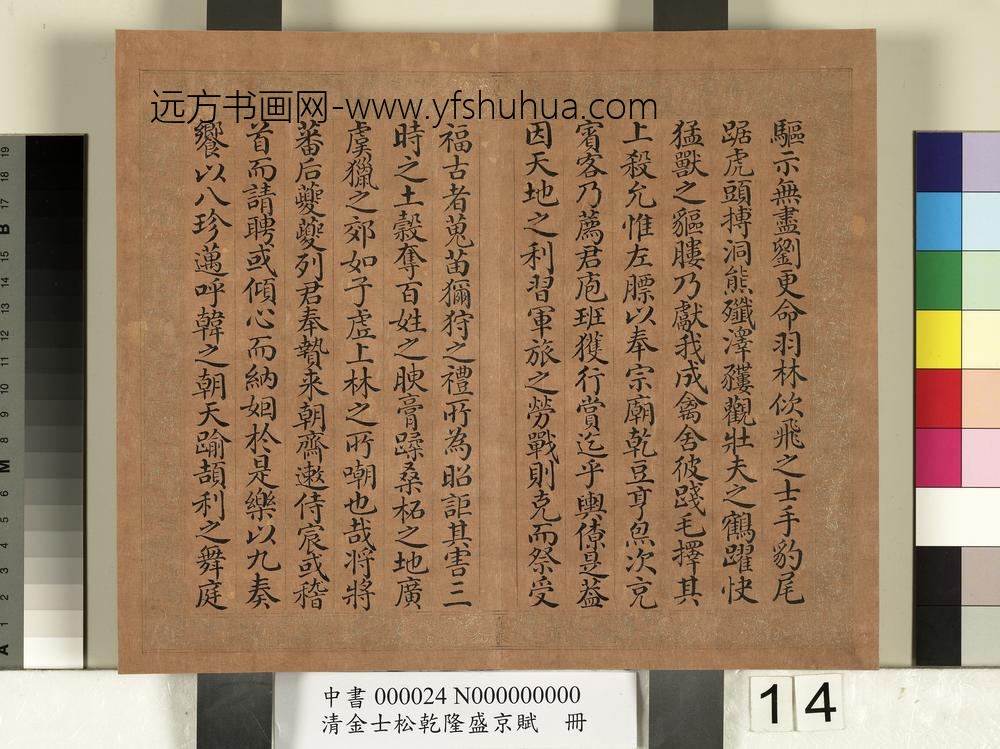 远方书画网-www.yfshuhua.com
驅示無盡劉更命羽林佽飛之士手豹尾
踞虎頭搏洞熊殲澤貗觀壯夫之鶴躍快
猛獸之貙膢乃獻我成禽舍彼踐毛擇其
上殺允惟左膘以奉宗廟乾豆亨炰次充
賓客乃薦君庖班獲行賞迄乎輿儓是葢
因天地之利習軍旅之勞戰則克而祭受
福古者蒐苗獮狩之禮所為昭詎其害三
時之土穀奪百姓之腴膏蹂桑柘之地廣
虞獵之郊如子虛上林之所嘲也哉將將
蕃后夔夔列君奉贄来朝齋遬侍宸或稽
首而請聘或傾心而納姻於是樂以九奏
饗以八珍邁呼韓之朝天踰頡利之舞庭
中書 000024 N000000000
清金士松乾隆盛京賦 冊
14
19
18
17
B
15
14
13
12
11
10
9
8
M
6
5
4
3
2
1
A